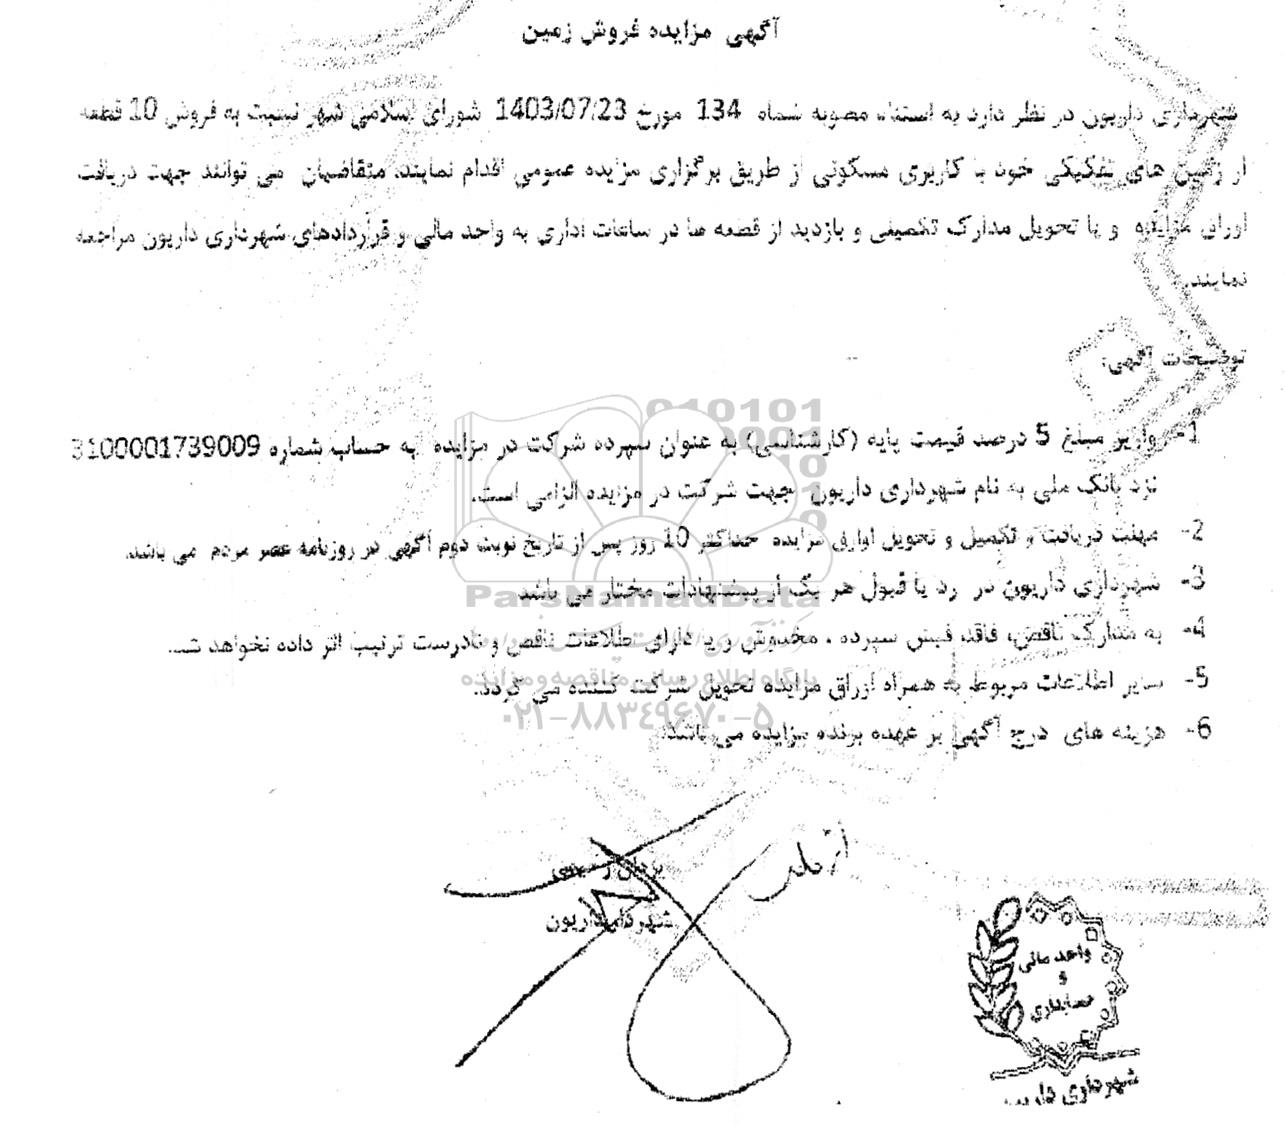 آگهی مزایده فروش زمین
شهرداری داریون در نظر دارد به استناد مصوبه شماه 134 مورخ 1403/07/23 شورای اسلامی شهر نسبت به فروش 10 قطعه
از زمین های تفکیکی خود با کاربری مسکونی از طریق برگزاری مزایده عمومی اقدام نمایند، متقاضیان می توانند جهت دریافت
اوراق مزایده و یا تحویل مدارک تکمیلی و بازدید از قطعه ها در ساعات اداری به واحد مالی و قراردادهای شهرداری داریون مراجعه
نمایند.
توضیحات آگهی:
1- واریز مبلغ 5 درصد قیمت پایه (کارشناسی) به عنوان سپرده شرکت در مزایده به حساب شماره 3100001739009
نزد بانک ملی به نام شهرداری داریون جهت شرکت در مزایده الزامی است.
2- مهلت دریافت و تکمیل و تحویل اوراق مزایده حداکثر 10 روز پس از تاریخ نوبت دوم آگهی در روزنامه عصر مردم می باشد.
3- شهرداری داریون در رد یا قبول هر یک از پیشنهادات مختار می باشد
4- به مدارک ناقص، فاقد فیش سپرده ، مخدوش و یا دارای اطلاعات ناقص و نادرست ترتیب اثر داده نخواهد شد.
5- سایر اطلاعات مربوط به همراه اوراق مزایده تحویل شرکت کننده می گردد.
6- هزینه های درج آگهی بر عهده برنده مزایده می باشد.
ParsNamadData
پایگاه اطلاع رسانی مناقصه و مزایده
۰۲۱-۸۸۳۴۹۶۷۰-۵
شهردار داریون
واحد مالی
و
حسابداری
شهرداری